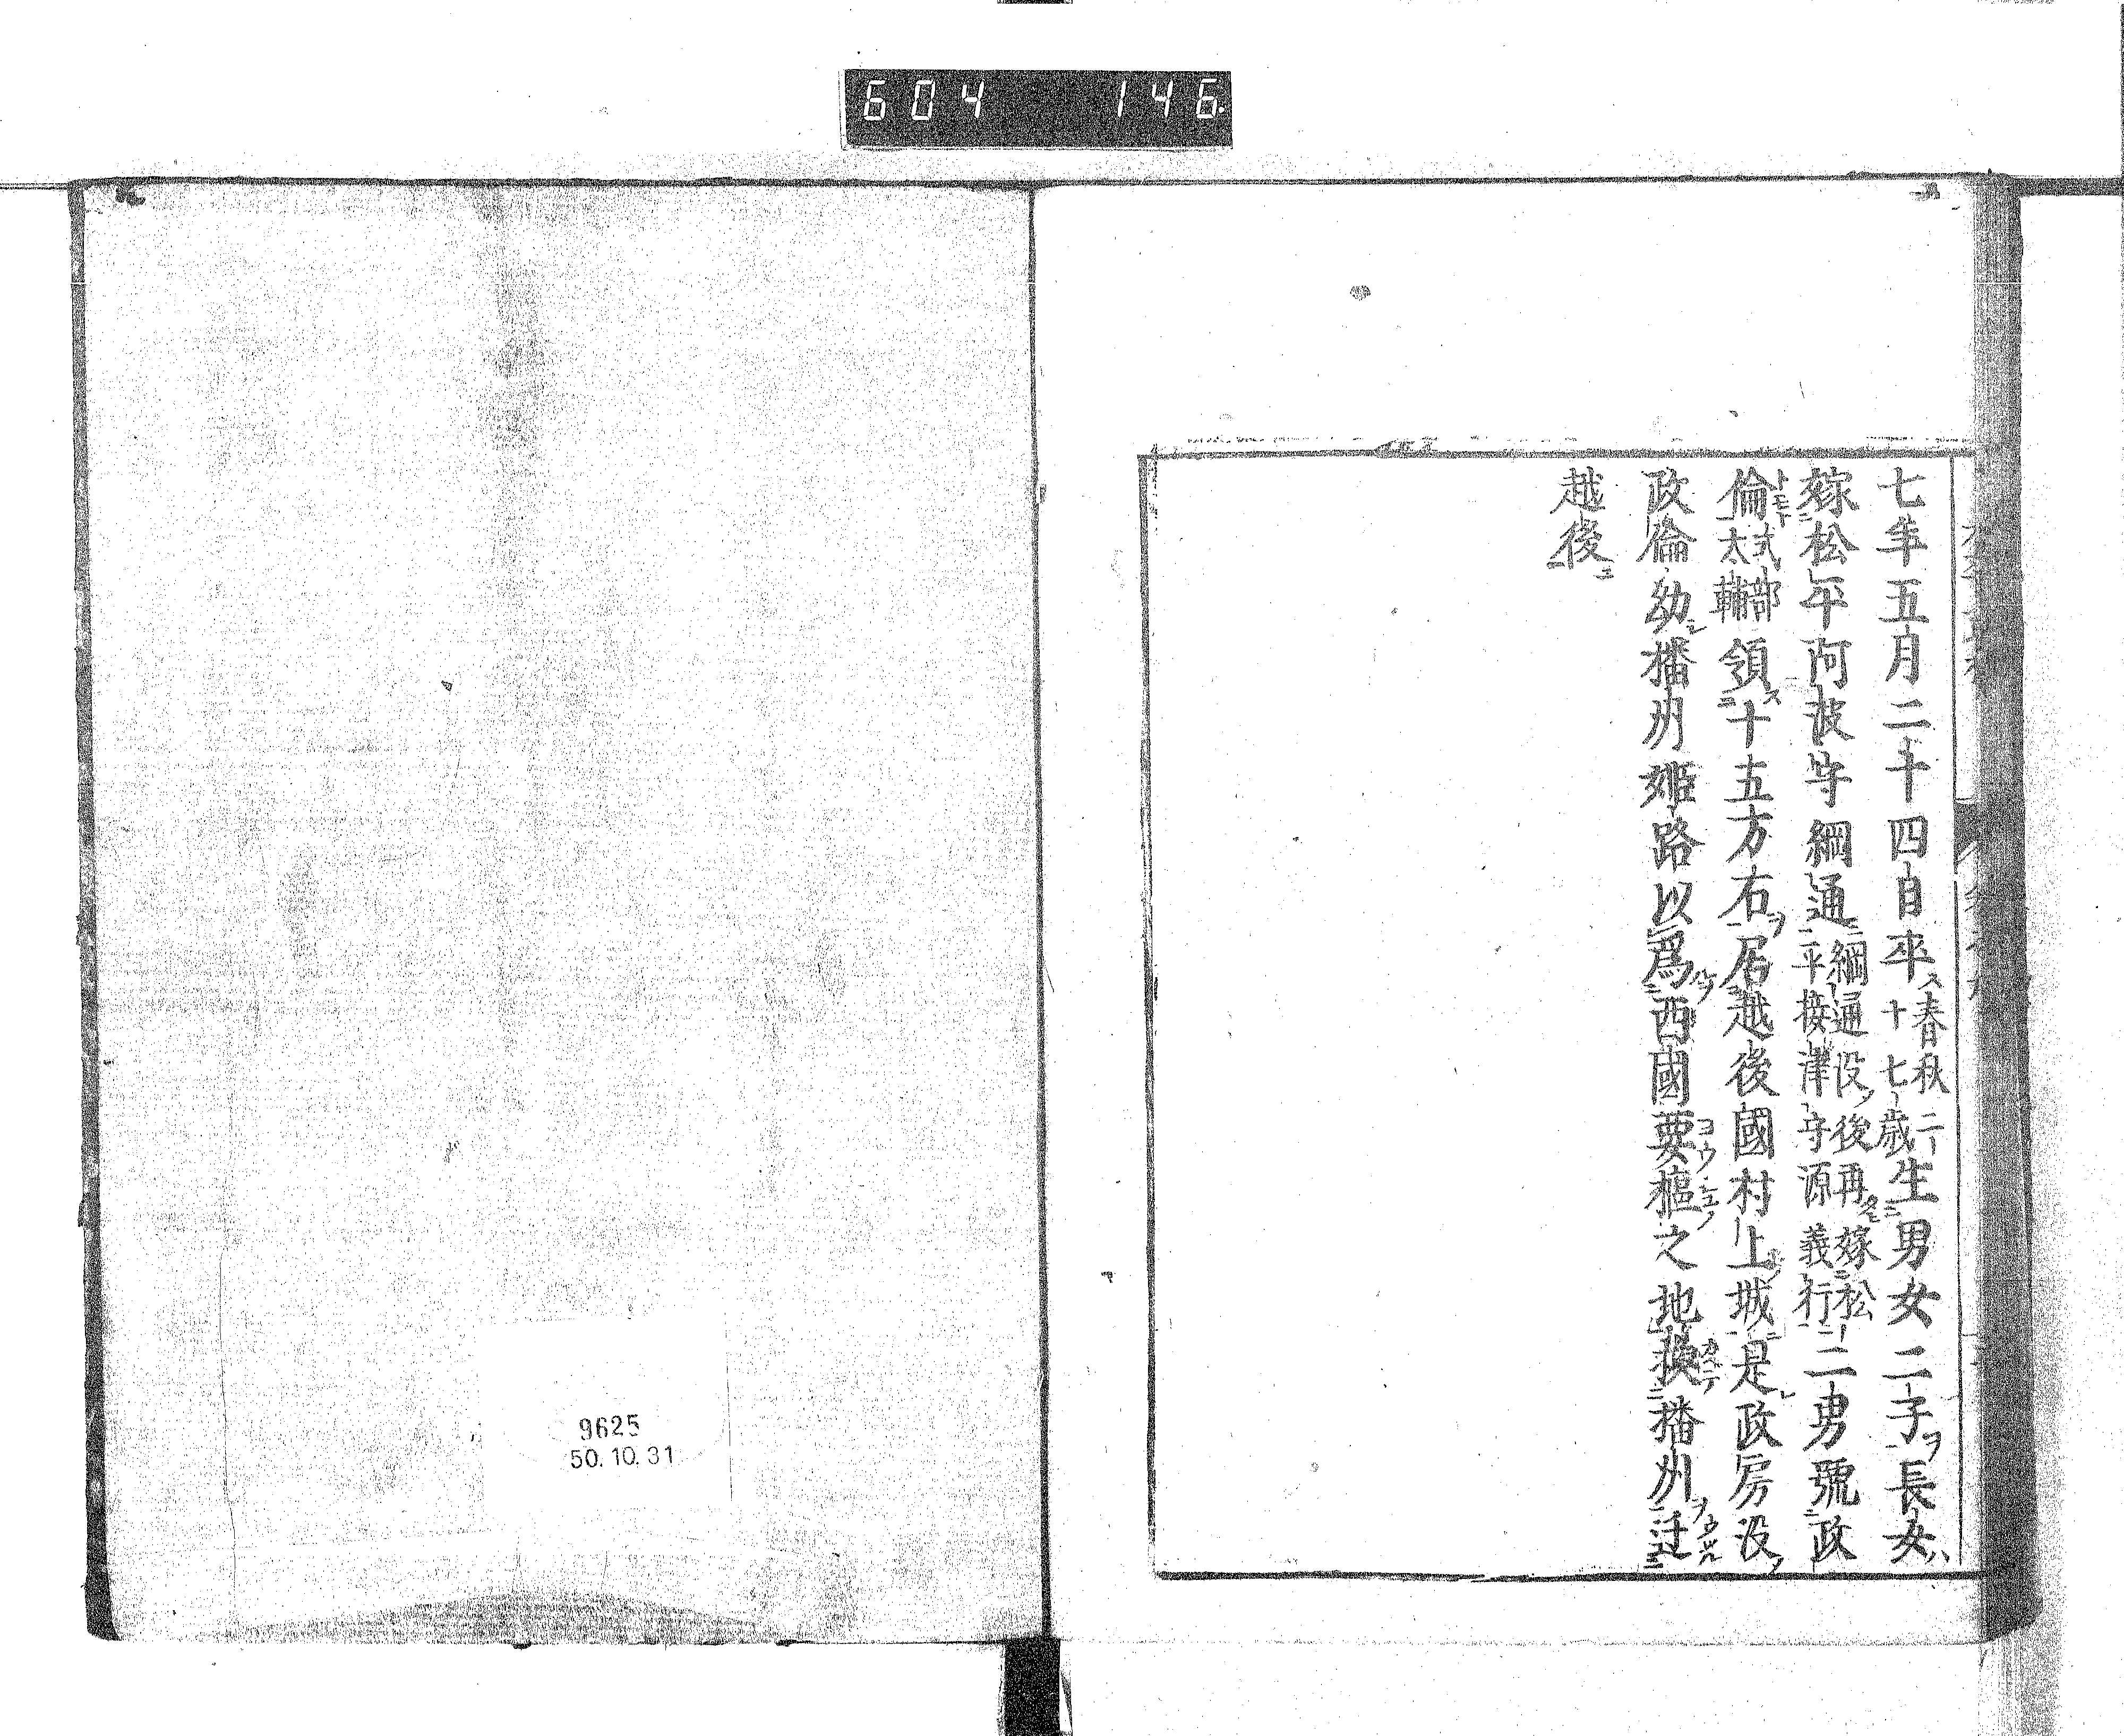 604 146.
七年五月二十四日卒春秋二十七歳生男女二子ヲ長女ハ
嫁松平阿波守綱通綱通没後再嫁松平接津守源義行二男號政
倫式部太輔領十五方石ヲ居越後國村上城是政房没
政倫幼播州姫路以爲西國要樞之地換播州迁
越後
9625
50.10.31